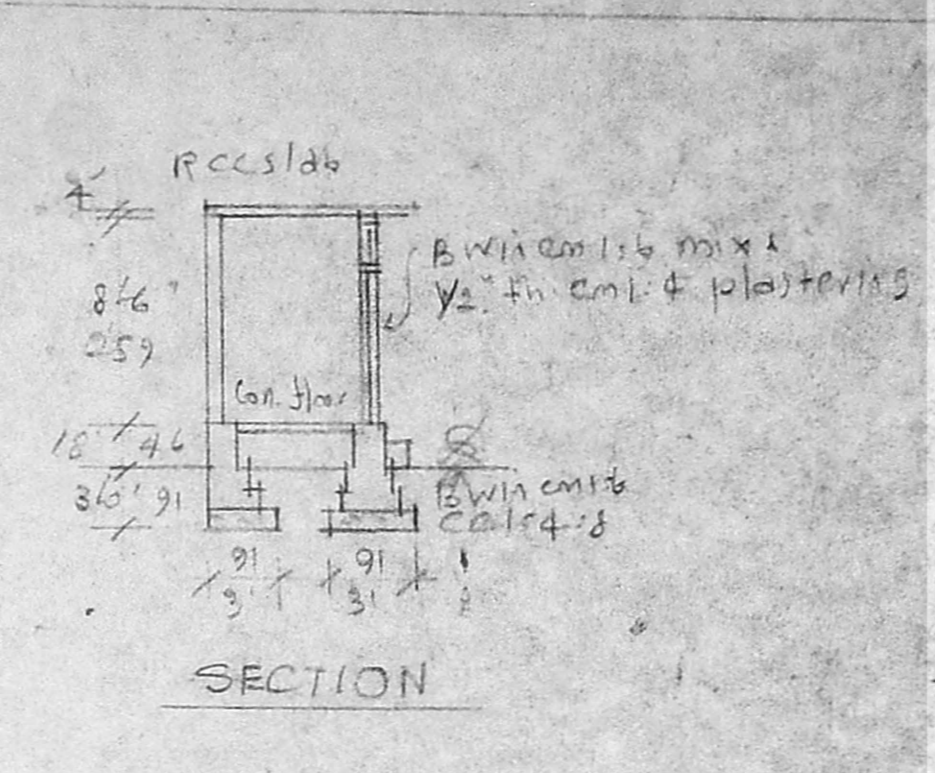 RCC slab
4'
B W in cm 1:6 mix &
1/2" th cm 1:4 plastering
8'6"
259
Con. floor
18" 46
3'0" 91
B W in cm 1:6
CC 1:4:8
91 91
3' 3'
SECTION